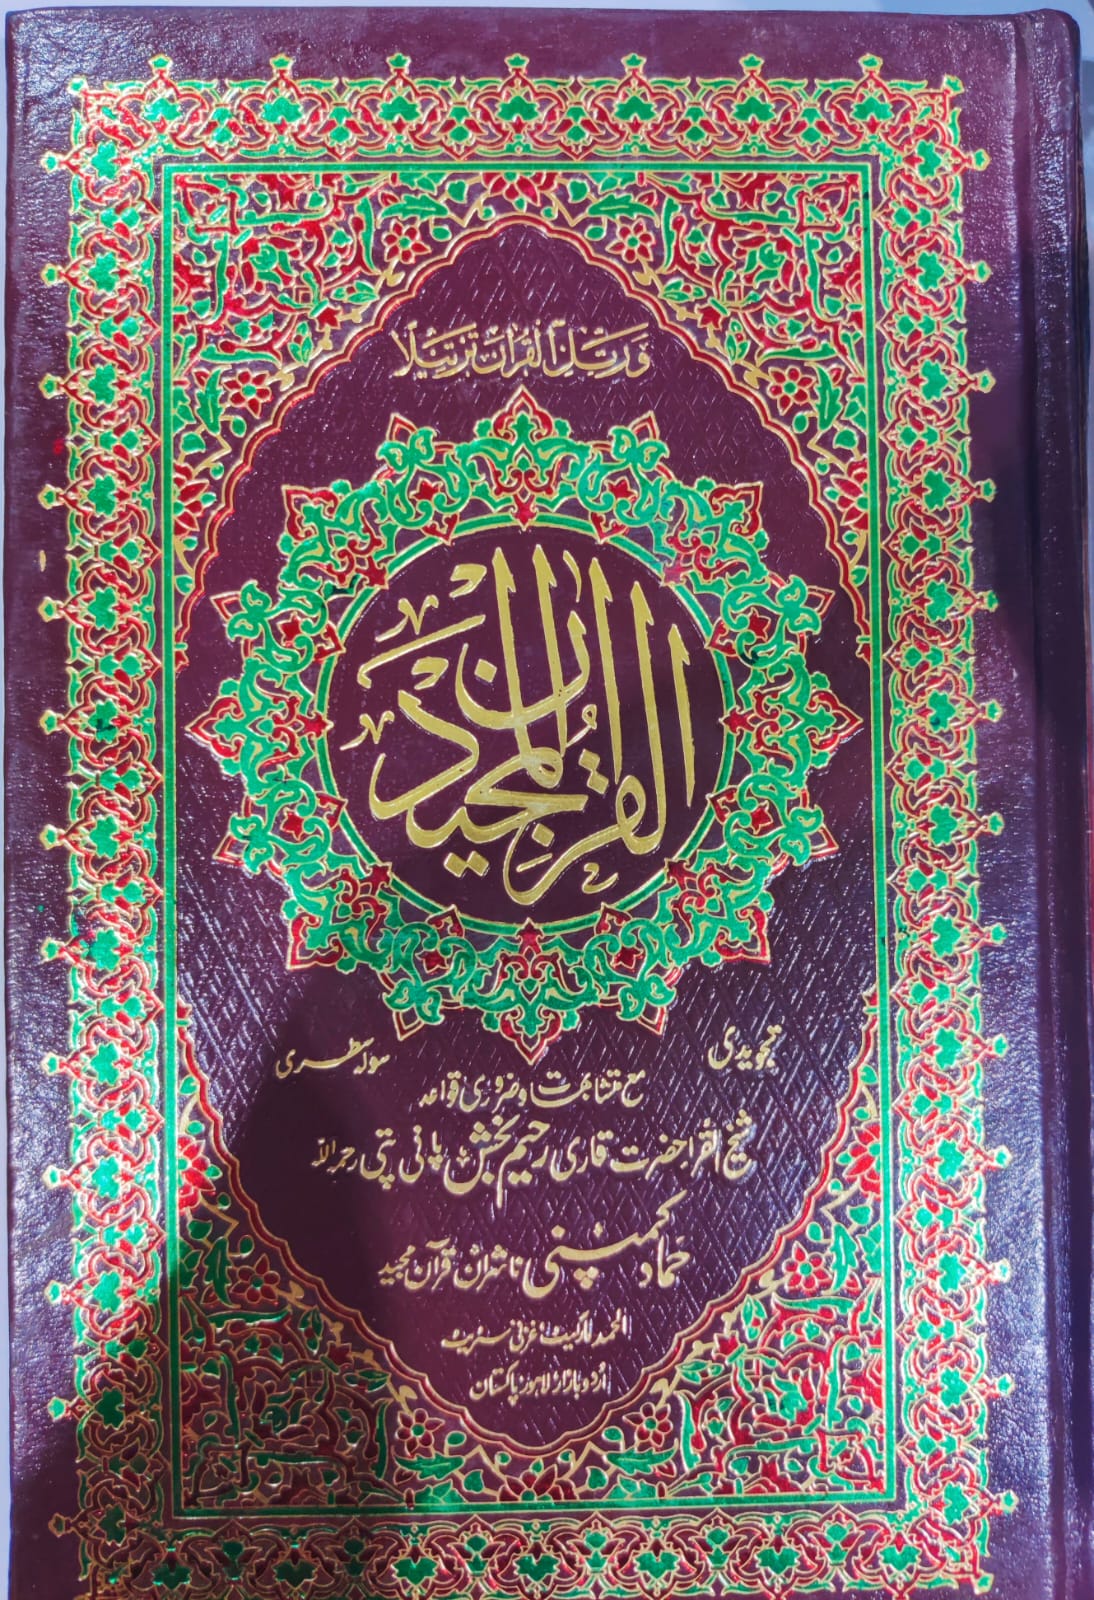 وَرَتِّلِ الْقُرْاٰنَ تَرْتِيْلًا
القرآن المجید
تجویدی سولہ سطری
مع متشابہت و ضروری قواعد
شیخ القراء حضرت قاری رحیم بخش پانی پتی رحمہ اللہ
حماد کمپنی ناشران قرآن مجید
الحمد مارکیٹ غزنی سٹریٹ
اُردو بازار لاہور پاکستان